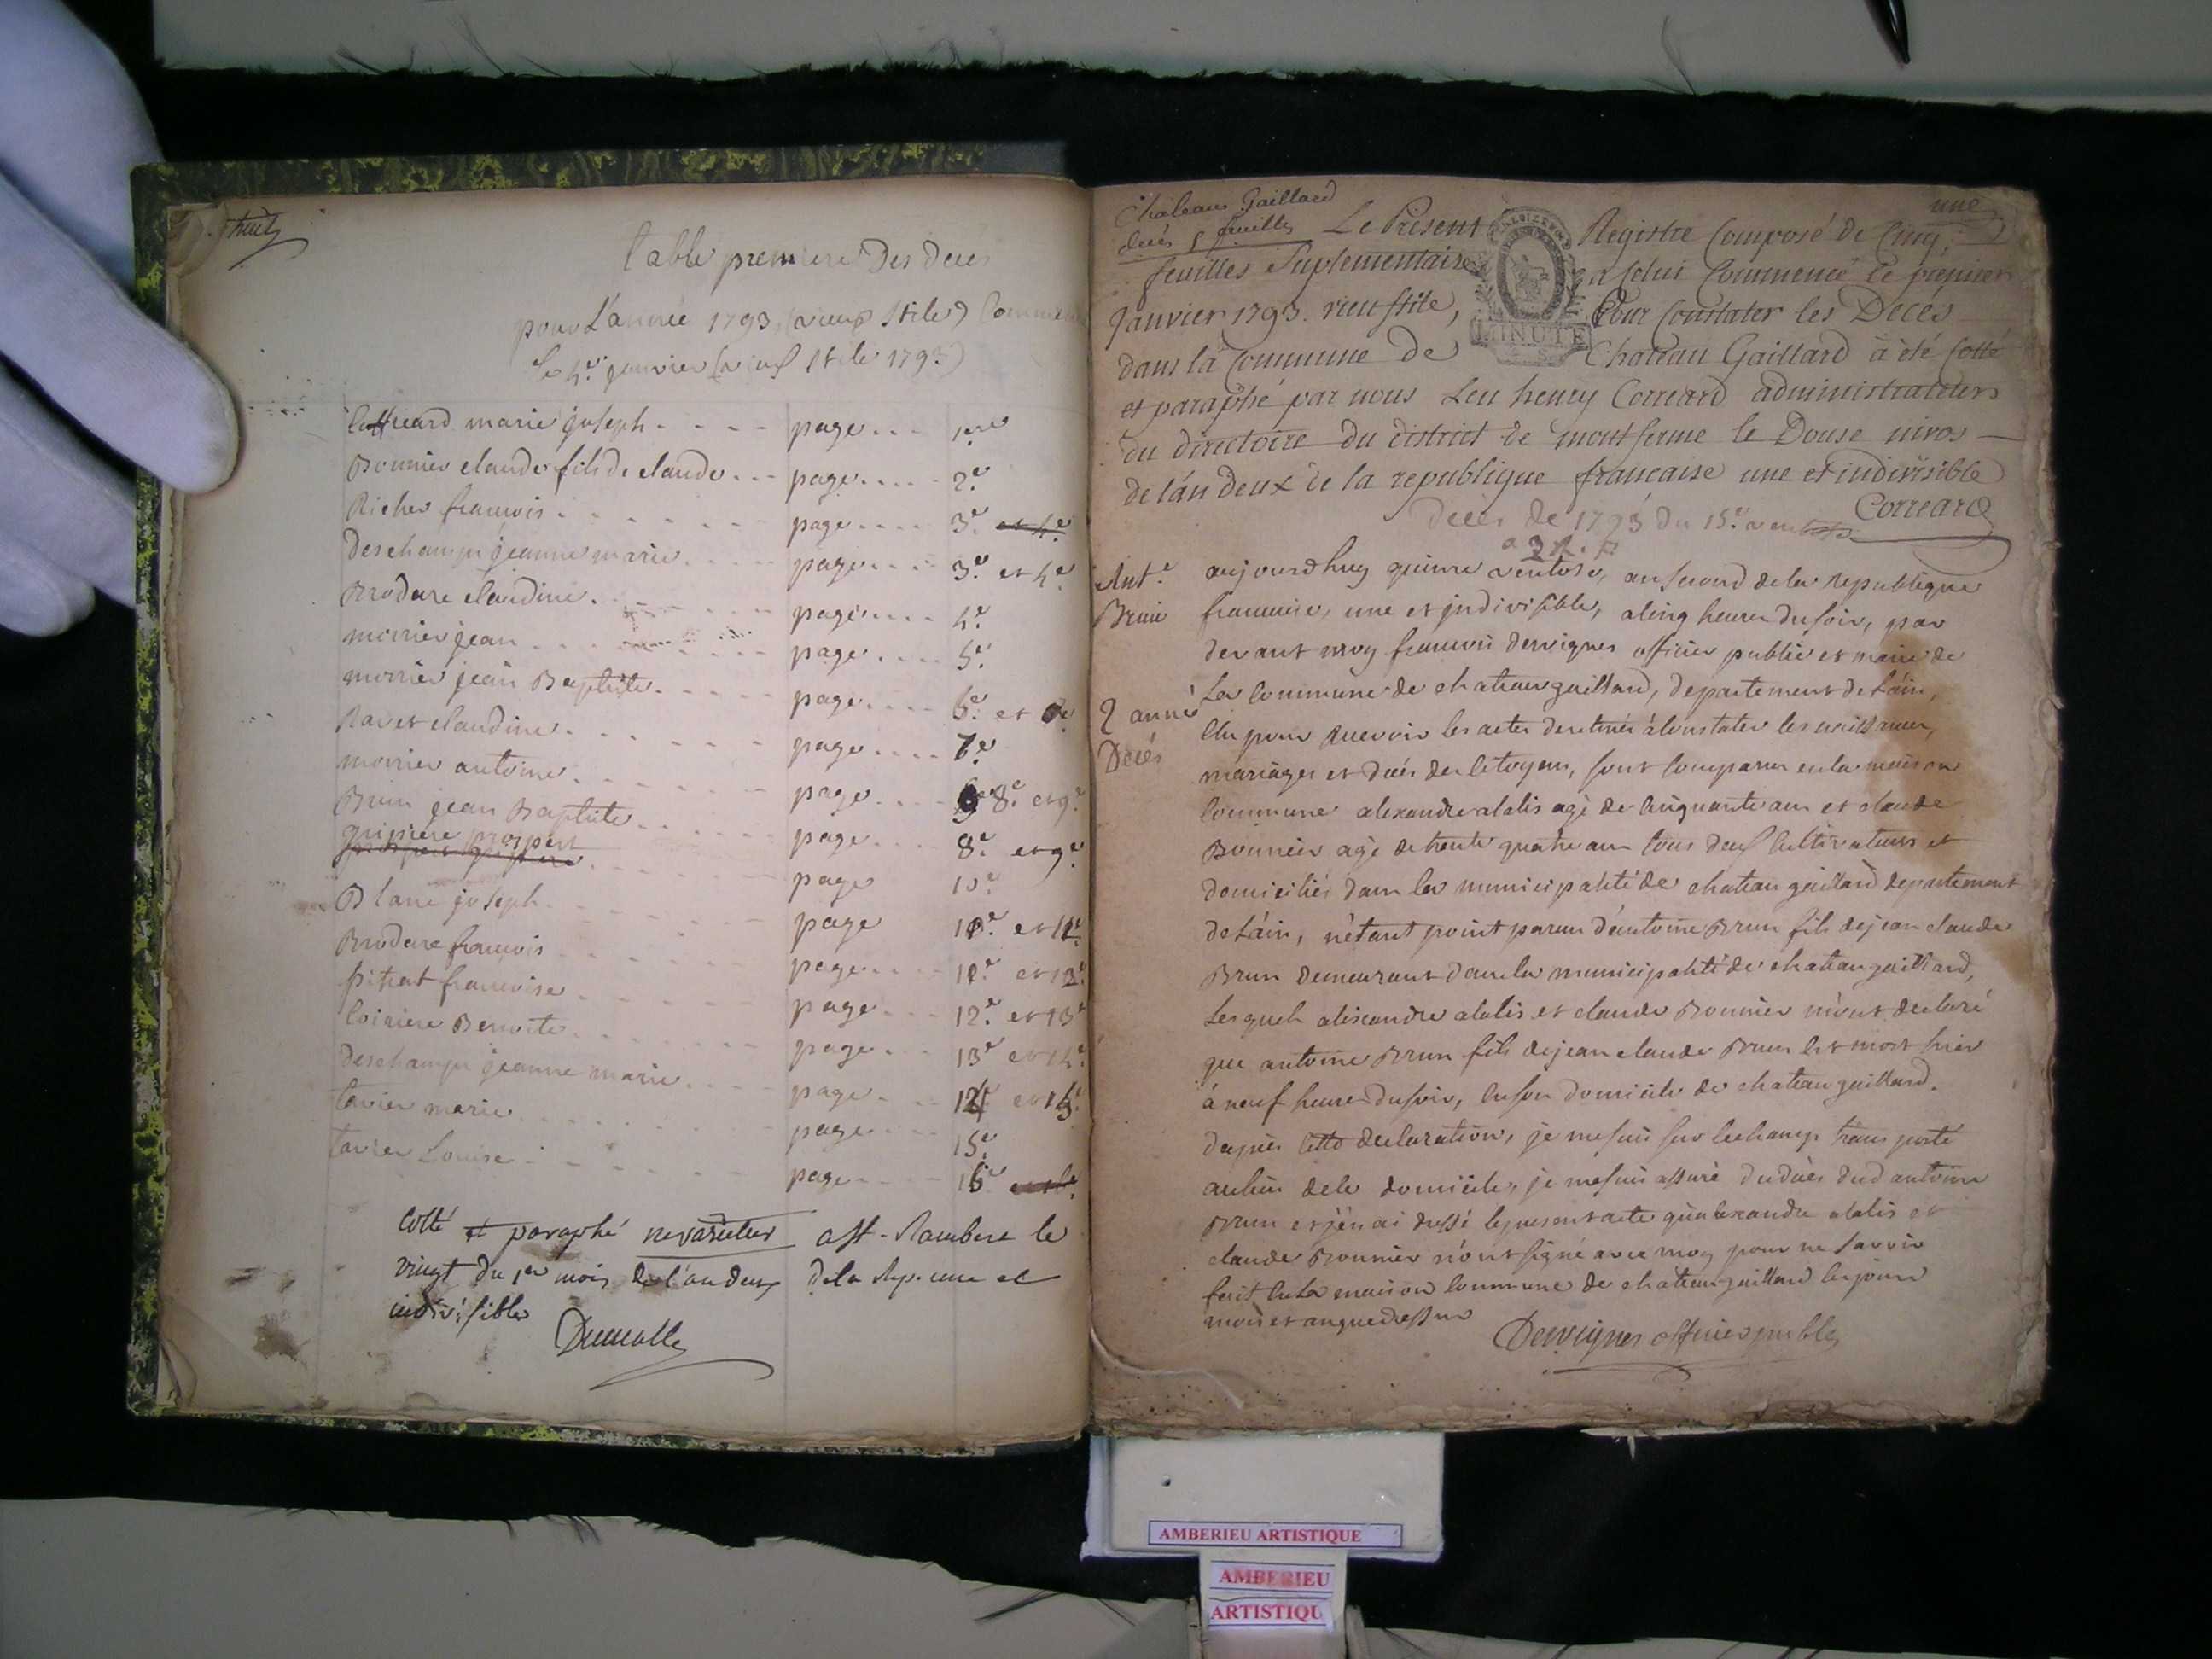 huit
table premiere des decés
pour L'année 1793 (vieux Stile) Commencé
le 1er janvier (vieux Stile 1793)
marie joseph page 1ere
Bonnier claude fils de claude page 2e
Richer francois page 3e et 4e
Deschamps jeanne marie page 3e et 4e
Brodare claudine page 4e
morrier jean page 5e
morrier jean Baptiste page 6e et
Ravet claudine page 7e
morrier antoine page 8e et 9e
Brun jean Baptiste page 8e et 9e
prospert page 10e
Blanc joseph page 10e et 11e
Brodare francois page 12e
pitrat francoise page 12e et 13e
Benoite page 13e et 14e
Deschamps jeanne marie page 14 et 15
tavier marie page 15e
tavier Louise page 16e
Cotté et paraphé nevarietur a St-Rambert le
vingt du 1er mois de l'an deux de la Rep. une et
indivisible
Chateau Gaillard
decés 5 feuilles
une
Le Présent Registre Composé de Cinq
feuilles Suplementaire a celui Commencé le premier
Janvier 1793. vieu stile, Pour Constater les Décès
MINUTE
dans la Commune de Chateau Gaillard à été Cotté
et paraphé par nous Leu henry Correard administrateurs
du directoire du district de montferme le Douse nivos
de l'an deux de la republique francaise une et indivisible
Correard
Décès de 1793 du 15e ventose
Ant.e
Brun
2 année
Décés
aujourdhuy quinze ventose, an second de la Republique
francaise, une et indivisible, a cinq heures du soir, par
devant moy francois dervignes officier public et maire de
La Commune de chateau gaillard, departement de Lain,
élu pour recevoir les actes destinés à constater les naissances,
mariages et décés des Citoyens, sont comparus en la maison
Commune alexandre alalis agé de cinquante ans et claude
Bonnier agé de trente quatre ans tous deux cultivateurs et
domiciliés dans la municipalité de chateau gaillard departement
de Lain, n'étant point parens d'antoine Brun fils de jean claude
Brun demeurant dans la municipalité de chateau gaillard,
Lesquels alexandre alalis et claude Bonnier m'ont declaré
que antoine Brun fils de jean claude Brun est mort hier
à neuf heures du soir, en son domicile de chateau gaillard.
dapres cette declaration, je me suis sur le champ transporté
au lieu de le domicile, je me suis assuré du décès dud antoine
Brun et j'en ai dressé le present acte qu'alexandre alalis et
claude Bonnier n'ont signé avec moy pour ne savoir
fait en la maison Commune de chateau gaillard les jour
mois et an que dessus
Dervignes officier public
AMBERIEU ARTISTIQUE
AMBERIEU
ARTISTIQU